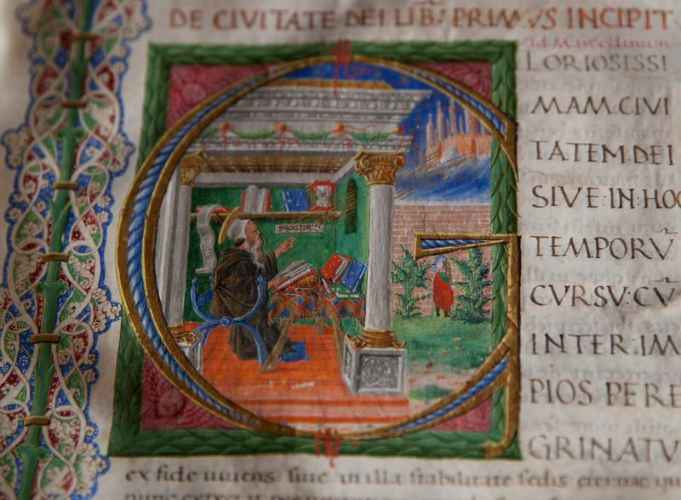 DE CIVITATE DEI LIB; PRIMVS INCIPIT
ad Marcellinum
LORIOSISSI
MAM CIVI
TATEM DEI
SIVE IN HOC
TEMPORV̄
CVRSV: CV̄
INTER IM
PIOS PERE
GRINATV
ex fide uiuens siue in illa stabilitate sedis eternae